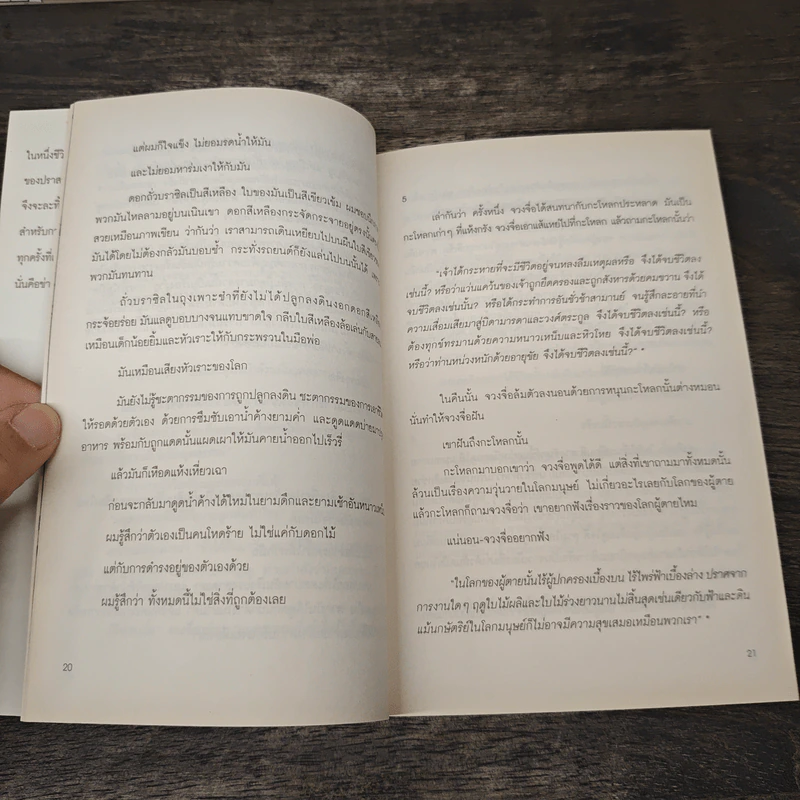 ในหนึ่งชีวิ
ของปราส
จึงจะละทิ้
สำหรับกา
ทุกครั้งที่เ
นั่นคือข่า
แต่ผมก็ใจแข็ง ไม่ยอมรดน้ำให้มัน
และไม่ยอมหาร่มเงาให้กับมัน
ดอกถั่วบราซิลเป็นสีเหลือง ใบของมันเป็นสีเขียวเข้ม ผมชอบ
พวกมันไหลลามอยู่บนเนินเขา ดอกสีเหลืองกระจัดกระจายอยู่ตรงนั้น
สวยเหมือนภาพเขียน ว่ากันว่า เราสามารถเดินเหยียบไปบนผืนใบสีเขียว
มันได้โดยไม่ต้องกลัวมันบอบช้ำ กระทั่งรถยนต์ก็ยังแล่นไปบนนั้นได้
พวกมันทนทาน
ถั่วบราซิลในถุงเพาะชำที่ยังไม่ได้ปลูกลงดินงอกดอกสีเหลือง
กระจ้อยร่อย มันแลดูบอบบางจนแทบขาดใจ กลีบใบสีเหลืองล้อเล่นกับสายลม
เหมือนเด็กน้อยยิ้มและหัวเราะให้กับกระพรวนในมือพ่อ
มันเหมือนเสียงหัวเราะของโลก
มันยังไม่รู้ชะตากรรมของการถูกปลูกลงดิน ชะตากรรมของการเอาชีวิต
ให้รอดด้วยตัวเอง ด้วยการซึมซับเอาน้ำค้างยามค่ำ และดูดแดดบ่ายมา
อาหาร พร้อมกับถูกแดดนั้นแผดเผาให้มันคายน้ำออกไปเร็วรี่
แล้วมันก็เหือดแห้งเหี่ยวเฉา
ก่อนจะกลับมาดูดน้ำค้างได้ใหม่ในยามดึกและยามเช้าอันหนาวเหน็บ
ผมรู้สึกว่าตัวเองเป็นคนโหดร้าย ไม่ใช่แค่กับดอกไม้
แต่กับการดำรงอยู่ของตัวเองด้วย
ผมรู้สึกว่า ทั้งหมดนี้ไม่ใช่สิ่งที่ถูกต้องเลย
20
5
เล่ากันว่า ครั้งหนึ่ง จวงจื่อได้สนทนากับกะโหลกประหลาด มันเป็น
กะโหลกเก่าๆ ที่แห้งกรัง จวงจื่อเอาแส้แหย่ไปที่กะโหลก แล้วถามกะโหลกนั้นว่า
"เจ้าได้กระหายที่จะมีชีวิตอยู่จนหลงลืมเหตุผลหรือ จึงได้จบชีวิตลง
เช่นนี้? หรือว่าแว่นแคว้นของเจ้าถูกยึดครองและถูกสังหารด้วยคมขวาน จึงได้
จบชีวิตลงเช่นนั้น? หรือได้กระทำการอันชั่วช้าสามานย์ จนรู้สึกละอายที่นำ
ความเสื่อมเสียมาสู่บิดามารดาและวงศ์ตระกูล จึงได้จบชีวิตลงเช่นนี้? หรือ
ต้องทุกข์ทรมานด้วยความหนาวเหน็บและหิวโหย จึงได้จบชีวิตลงเช่นนี้?
หรือว่าท่านหน่วงหนักด้วยอายุขัย จึงได้จบชีวิตลงเช่นนี้?" *
ในคืนนั้น จวงจื่อล้มตัวลงนอนด้วยการหนุนกะโหลกนั้นต่างหมอน
นั่นทำให้จวงจื่อฝัน
เขาฝันถึงกะโหลกนั้น
กะโหลกมาบอกเขาว่า จวงจื่อพูดได้ดี แต่สิ่งที่เขาถามมาทั้งหมดนั้น
ล้วนเป็นเรื่องความวุ่นวายในโลกมนุษย์ ไม่เกี่ยวอะไรเลยกับโลกของผู้ตาย
แล้วกะโหลกก็ถามจวงจื่อว่า เขาอยากฟังเรื่องราวของโลกผู้ตายไหม
แน่นอน-จวงจื่ออยากฟัง
"ในโลกของผู้ตายนั้นไร้ผู้ปกครองเบื้องบน ไร้ไพร่ฟ้าเบื้องล่าง ปราศจาก
การงานใดๆ ฤดูใบไม้ผลิและใบไม้ร่วงยาวนานไม่สิ้นสุดเช่นเดียวกับฟ้าและดิน
แม้นกษัตริย์ในโลกมนุษย์ก็ไม่อาจมีความสุขเสมอเหมือนพวกเรา" *
21